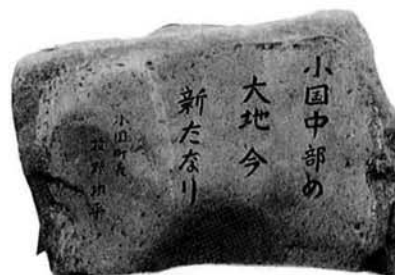 小国中部の
大地今
新たなり
小国町長
牧野功平